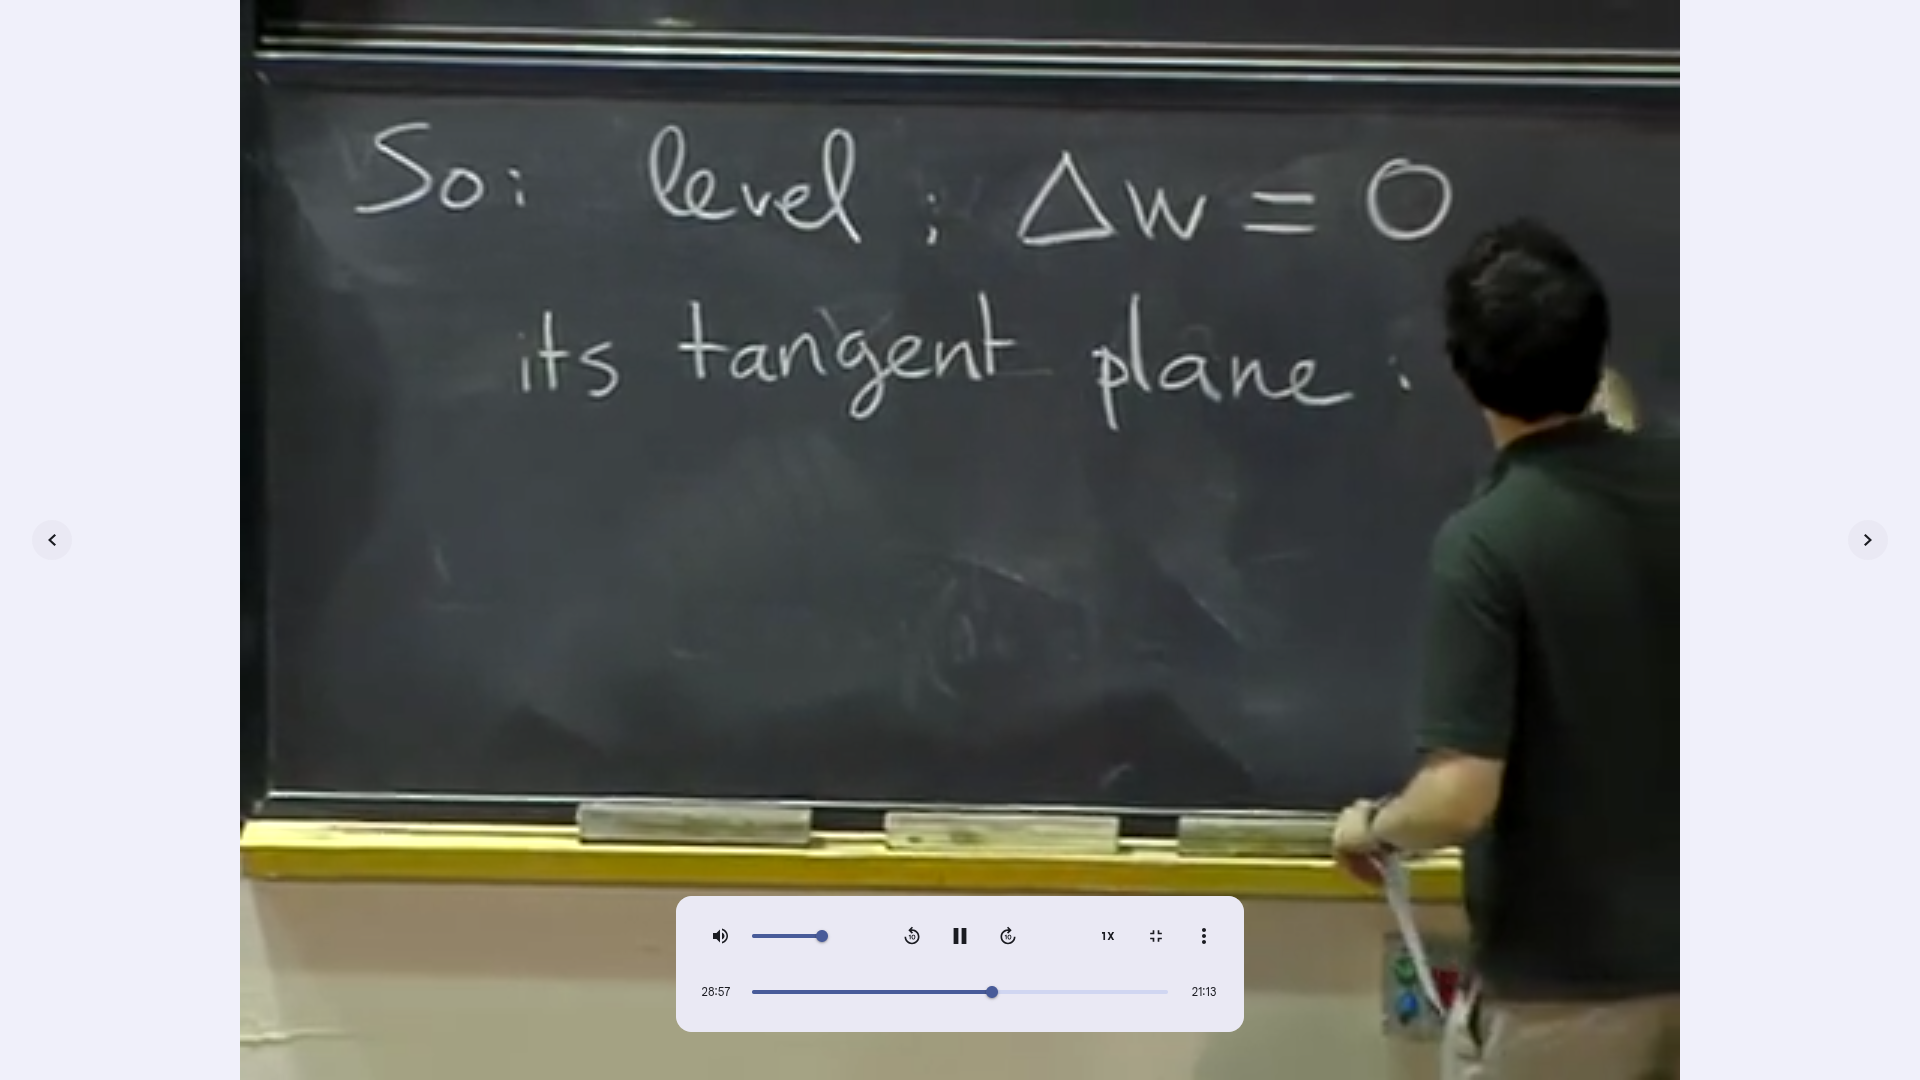 So: level : Δw = 0
its tangent plane :
1X
28:57
21:13